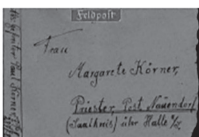 Feldpost
Frau
Margarete Körner,
Priester, Post Nauendorf
(Saalkreis) über Halle a/S.